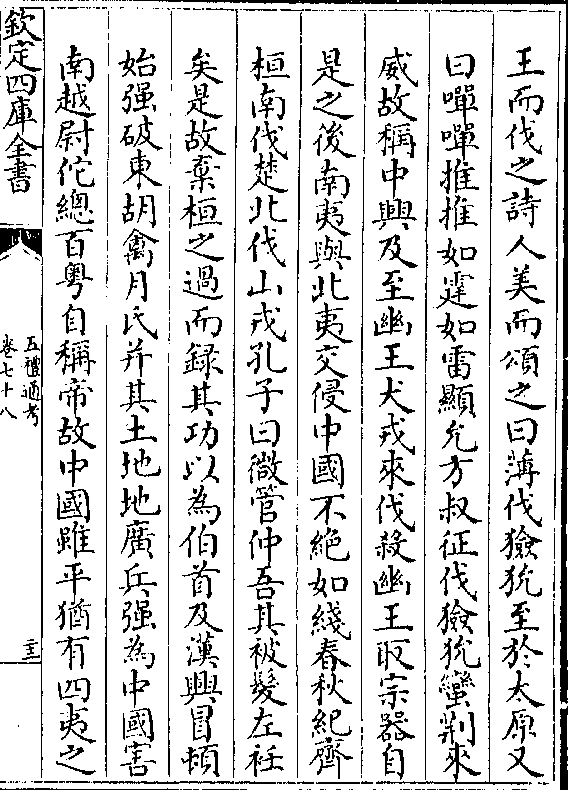 王而伐之詩人美而頌之曰薄伐獫狁至於太原又
曰嘽嘽推推如霆如雷顯允方叔征伐獫狁蠻荆來
威故稱中興及至幽王犬戎來伐殺幽王取宗器自
是之後南夷與北夷交侵中國不絶如綫春秋紀齊
桓南伐楚北伐山戎孔子曰微管仲吾其被髮左衽
矣是故棄桓之過而録其功以為伯首及漢興冒頓
始强破東胡禽月氏并其土地地廣兵强為中國害
南越尉佗總百粤自稱帝故中國雖平猶有四夷之
欽定四庫全書
五禮通考
卷七十八